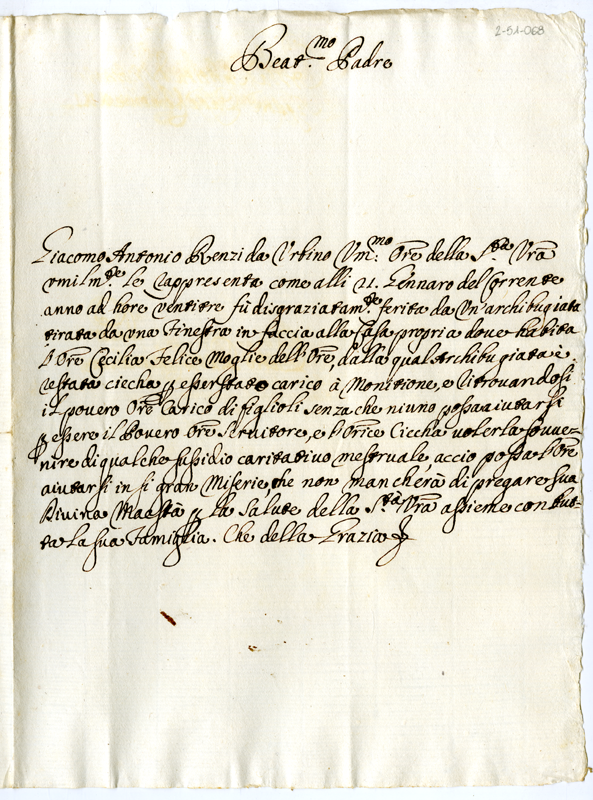 2-51-068
Beat.mo Padre
Giacomo Antonio Renzi da Urbino Um.mo Ore della S.ta Vra
umilm.te le rappresenta come alli 21. Gennaro del Corrente
anno ad hore ventitre fù disgraziatam.te ferita da Un'archibugiata
tirata da una Finestra in faccia alla Casa propria doue habita
l'Ore Cecilia Felice Moglie dell'Ore, dalla qual Archibugiata è
restata ciecha p esser stato carico à Monitione, e ritrouandosi
il pouero Ore Carico di figlioli senza che niuno possa aiutarsi
p essere il Pouero Ore Seruitore, e l'Orice Ciecha uolerla souue=
nire di qualche sussidio caritatiuo mestruale, acciò possa l'Ore
aiutarsi in si gran Miserie, che non mancherà di pregare sua
Diuina Maestà p la salute della S.tà Vra assieme con tut=
ta la sua Famiglia. Che della Grazia